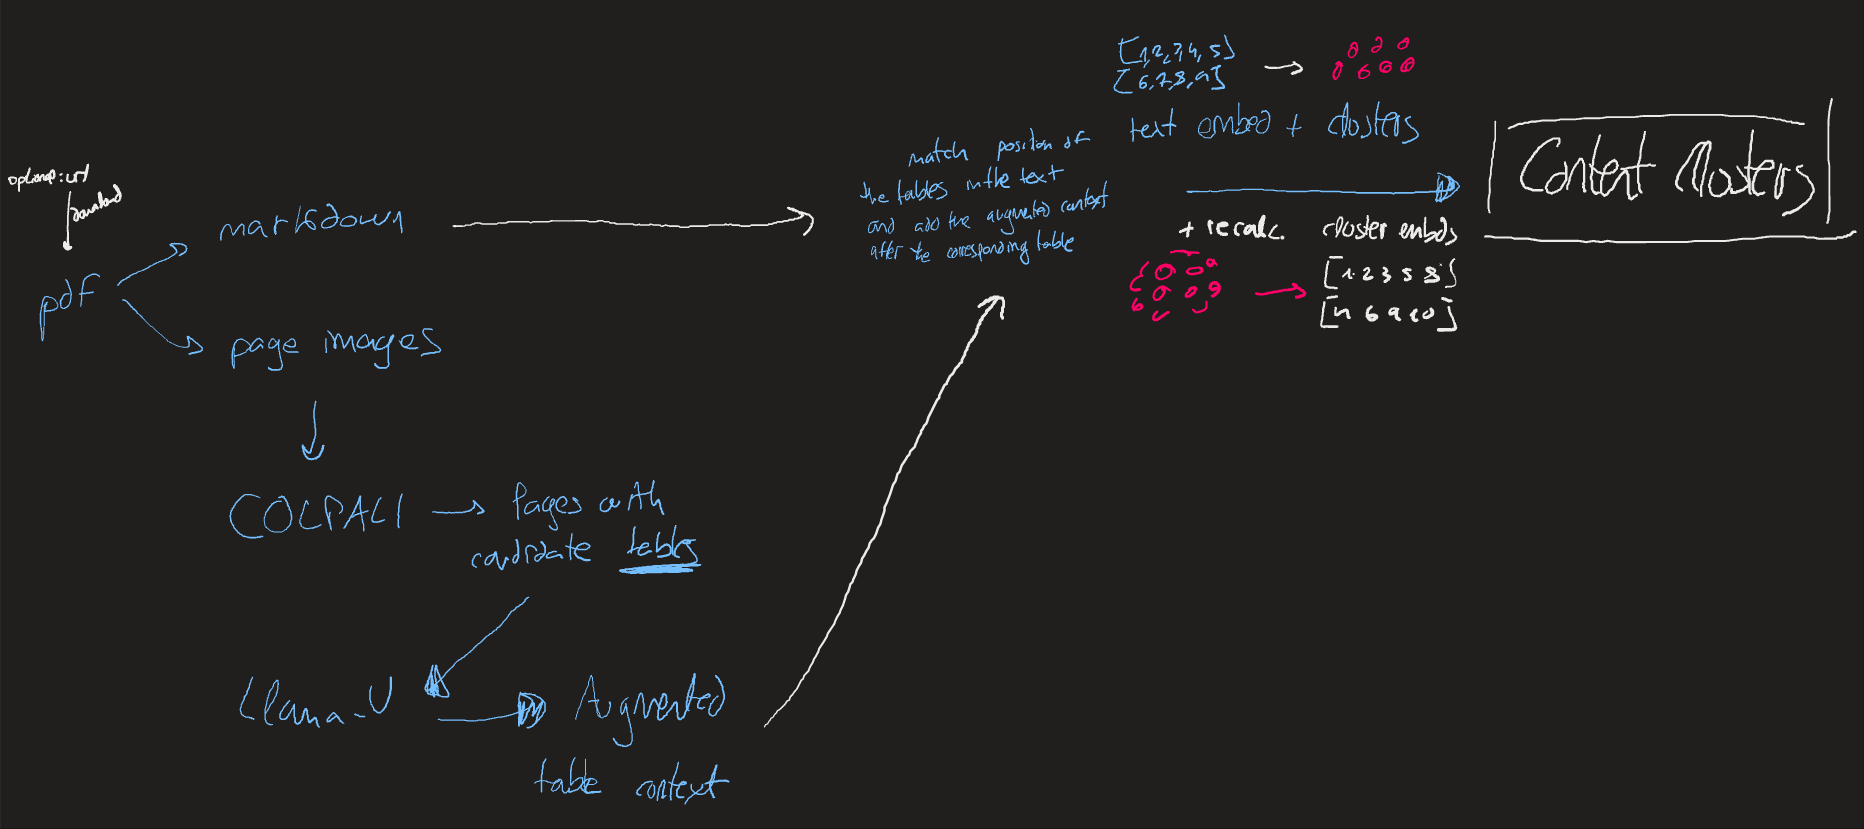 optional: url
download
pdf
markdown
page images
COLPALI
Pages with
candidate tables
Llama-V
Augmented
table context
match position of
the tables in the text
and add the augmented context
after the corresponding table
[1,2,3,4,5]
[6,7,8,9]
text embed + clusters
+ recalc. cluster embds
[1 2 3 5 8]
[4 6 9 10]
Content Clusters